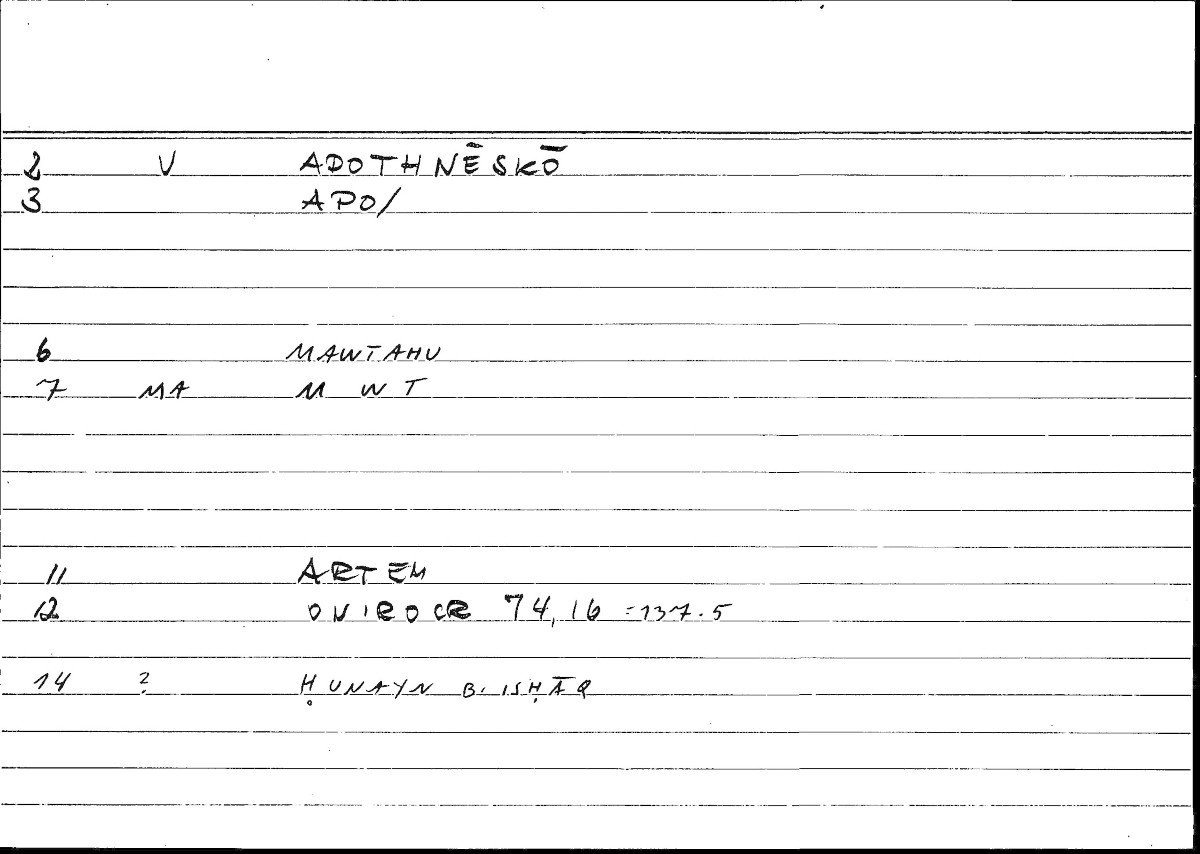 2 V ADOTHNĒSKŌ
3 APO/
6 MAWTAHU
7 MA M W T
11 ARTEM
12 ONIROCR 74,16 =137.5
14 ? ḤUNAYN B. ISḤĀQ